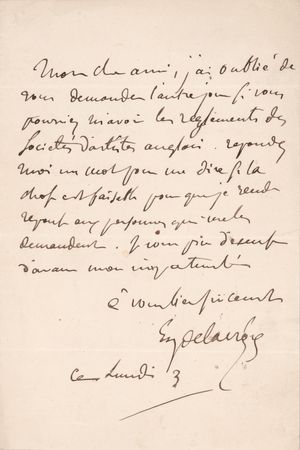 Mon cher ami, j'ai oublié de
vous demander l'autre jour si vous
pourriez m'avoir les règlements des
Sociétés d'artistes anglais. répondez
moi un mot pour me dire si la
chose est faisable pour que je rende
réponse aux personnes qui me les
demandent. Je vous prie d'excuser
d'avance mon importunité
à vous bien sincèrement
Eug delacroix
ce lundi 3